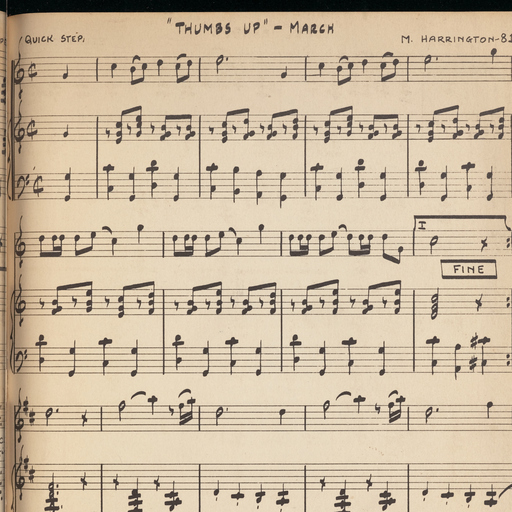 "THUMBS UP" - MARCH
QUICK STEP.
M. HARRINGTON-81
I
FINE